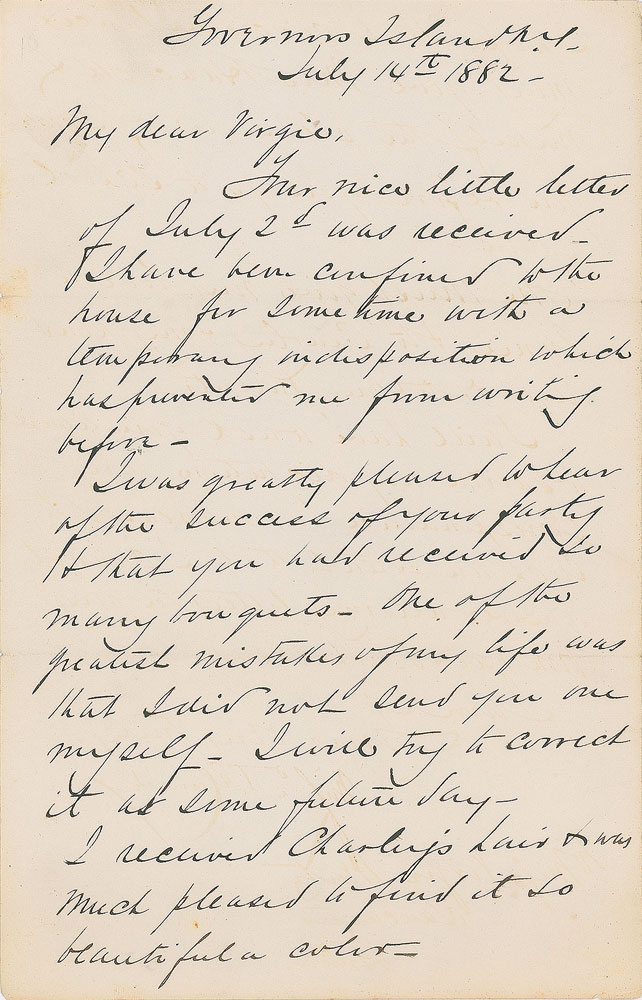 Governors Island N.Y.
July 14th 1882 -
My dear Virgie,
Your nice little letter
of July 2d was received -
I have been confined to the
house for some time with a
temporary indisposition which
has prevented me from writing
before -
I was greatly pleased to hear
of the success of your party
& that you had received so
many bouquets - One of the
greatest mistakes of my life was
that I did not send you one
myself - I will try to correct
it at some future day -
I received Charley's hair & was
much pleased to find it so
beautiful a color -